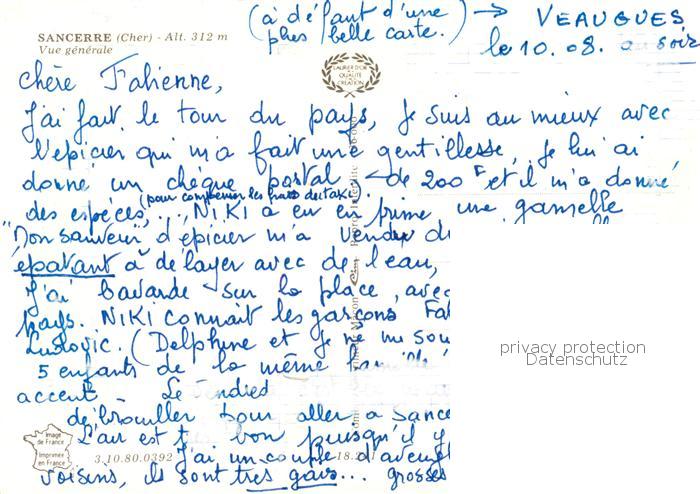 (à défaut d'une → VEAUGUES
plus belle carte.) le 10.08. au soir
SANCERRE (Cher) - Alt. 312 m
Vue générale
LAURIER D'OR
QUALITÉ
CRÉATION
Chère Fabienne,
J'ai fait le tour du pays, je suis au mieux avec
l'épicier qui m'a fait une gentillesse, je lui ai
donné un chèque postal de 200F et il m'a donné
(pour compenser les frais de taxi).
des espèces, ... NIKI a eu en prime, une gamelle
"Mon sauveur" d'épicier m'a vendu du
épatant à délayer avec de l'eau,
J'ai bavardé sur la place, avec
pays. NIKI connait les garçons
Ludovic. (Delphine et je ne me
5 enfants de la même famille
accent - Le
débrouiller pour aller à
L'air est bon puisqu'il y
J'ai un couple
voisins, ils sont très gais... grosses
Image
de France
Imprimée
en France
3.10.80.0392
privacy protection
Datenschutz